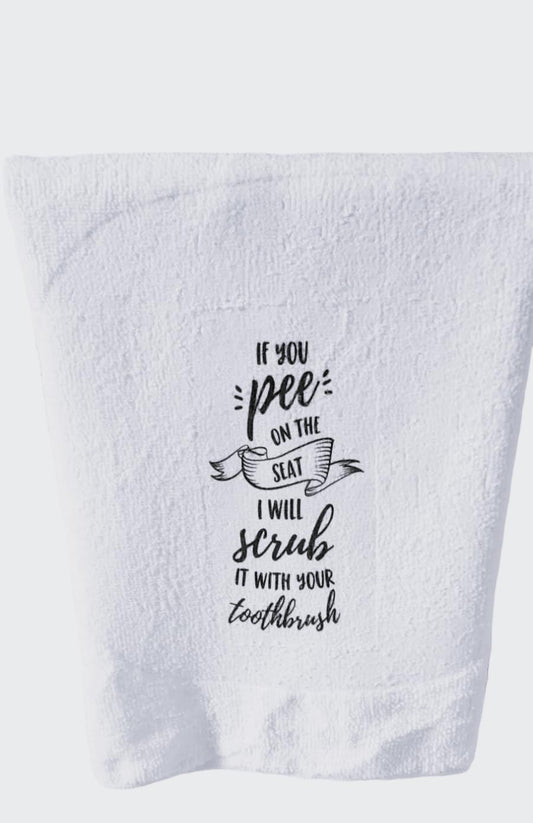 IF YOU
pee
ON THE
SEAT
I WILL
scrub
IT WITH YOUR
toothbrush